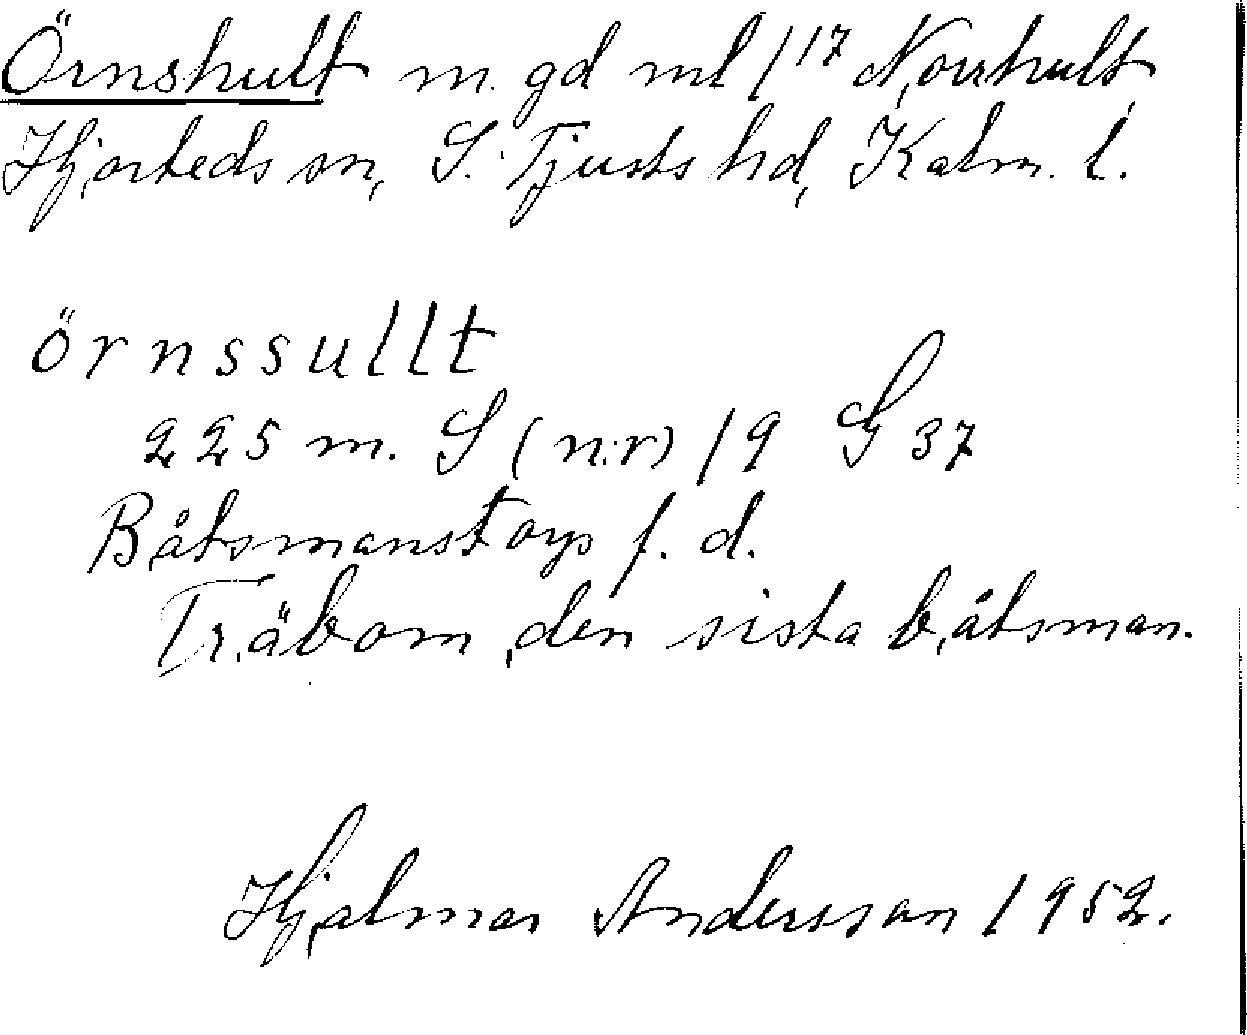 Örnshult m. gd ml 1/17 Norrhult,
Hjorteds sn, S. Tjusts hd, Kalm. l.
örnssullt
225 m. S (n:r) 19 G 37
Båtsmanstorp f. d.
Träbom, den sista båtsman.
Hjalmar Andersson 1952.